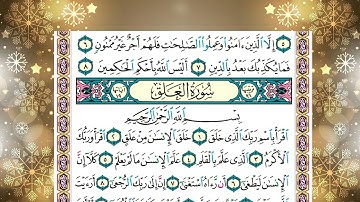 ٥ إِلَّا ٱلَّذِينَ ءَامَنُوا۟ وَعَمِلُوا۟ ٱلصَّـٰلِحَـٰتِ فَلَهُمْ أَجْرٌ غَيْرُ مَمْنُونٍ ٦
فَمَا يُكَذِّبُكَ بَعْدُ بِٱلدِّينِ ٧ أَلَيْسَ ٱللَّهُ بِأَحْكَمِ ٱلْحَـٰكِمِينَ ٨
سُورَةُ ٱلْعَلَقِ
بِسْمِ ٱللَّهِ ٱلرَّحْمَـٰنِ ٱلرَّحِيمِ
ٱقْرَأْ بِٱسْمِ رَبِّكَ ٱلَّذِى خَلَقَ ١ خَلَقَ ٱلْإِنسَـٰنَ مِنْ عَلَقٍ ٢ ٱقْرَأْ وَرَبُّكَ
ٱلْأَكْرَمُ ٣ ٱلَّذِى عَلَّمَ بِٱلْقَلَمِ ٤ عَلَّمَ ٱلْإِنسَـٰنَ مَا لَمْ يَعْلَمْ ٥ كَلَّآ إِنَّ
ٱلْإِنسَـٰنَ لَيَطْغَىٰٓ ٦ أَن رَّءَاهُ ٱسْتَغْنَىٰٓ ٧ إِنَّ إِلَىٰ رَبِّكَ ٱلرُّجْعَىٰٓ ٨ أَرَءَيْتَ